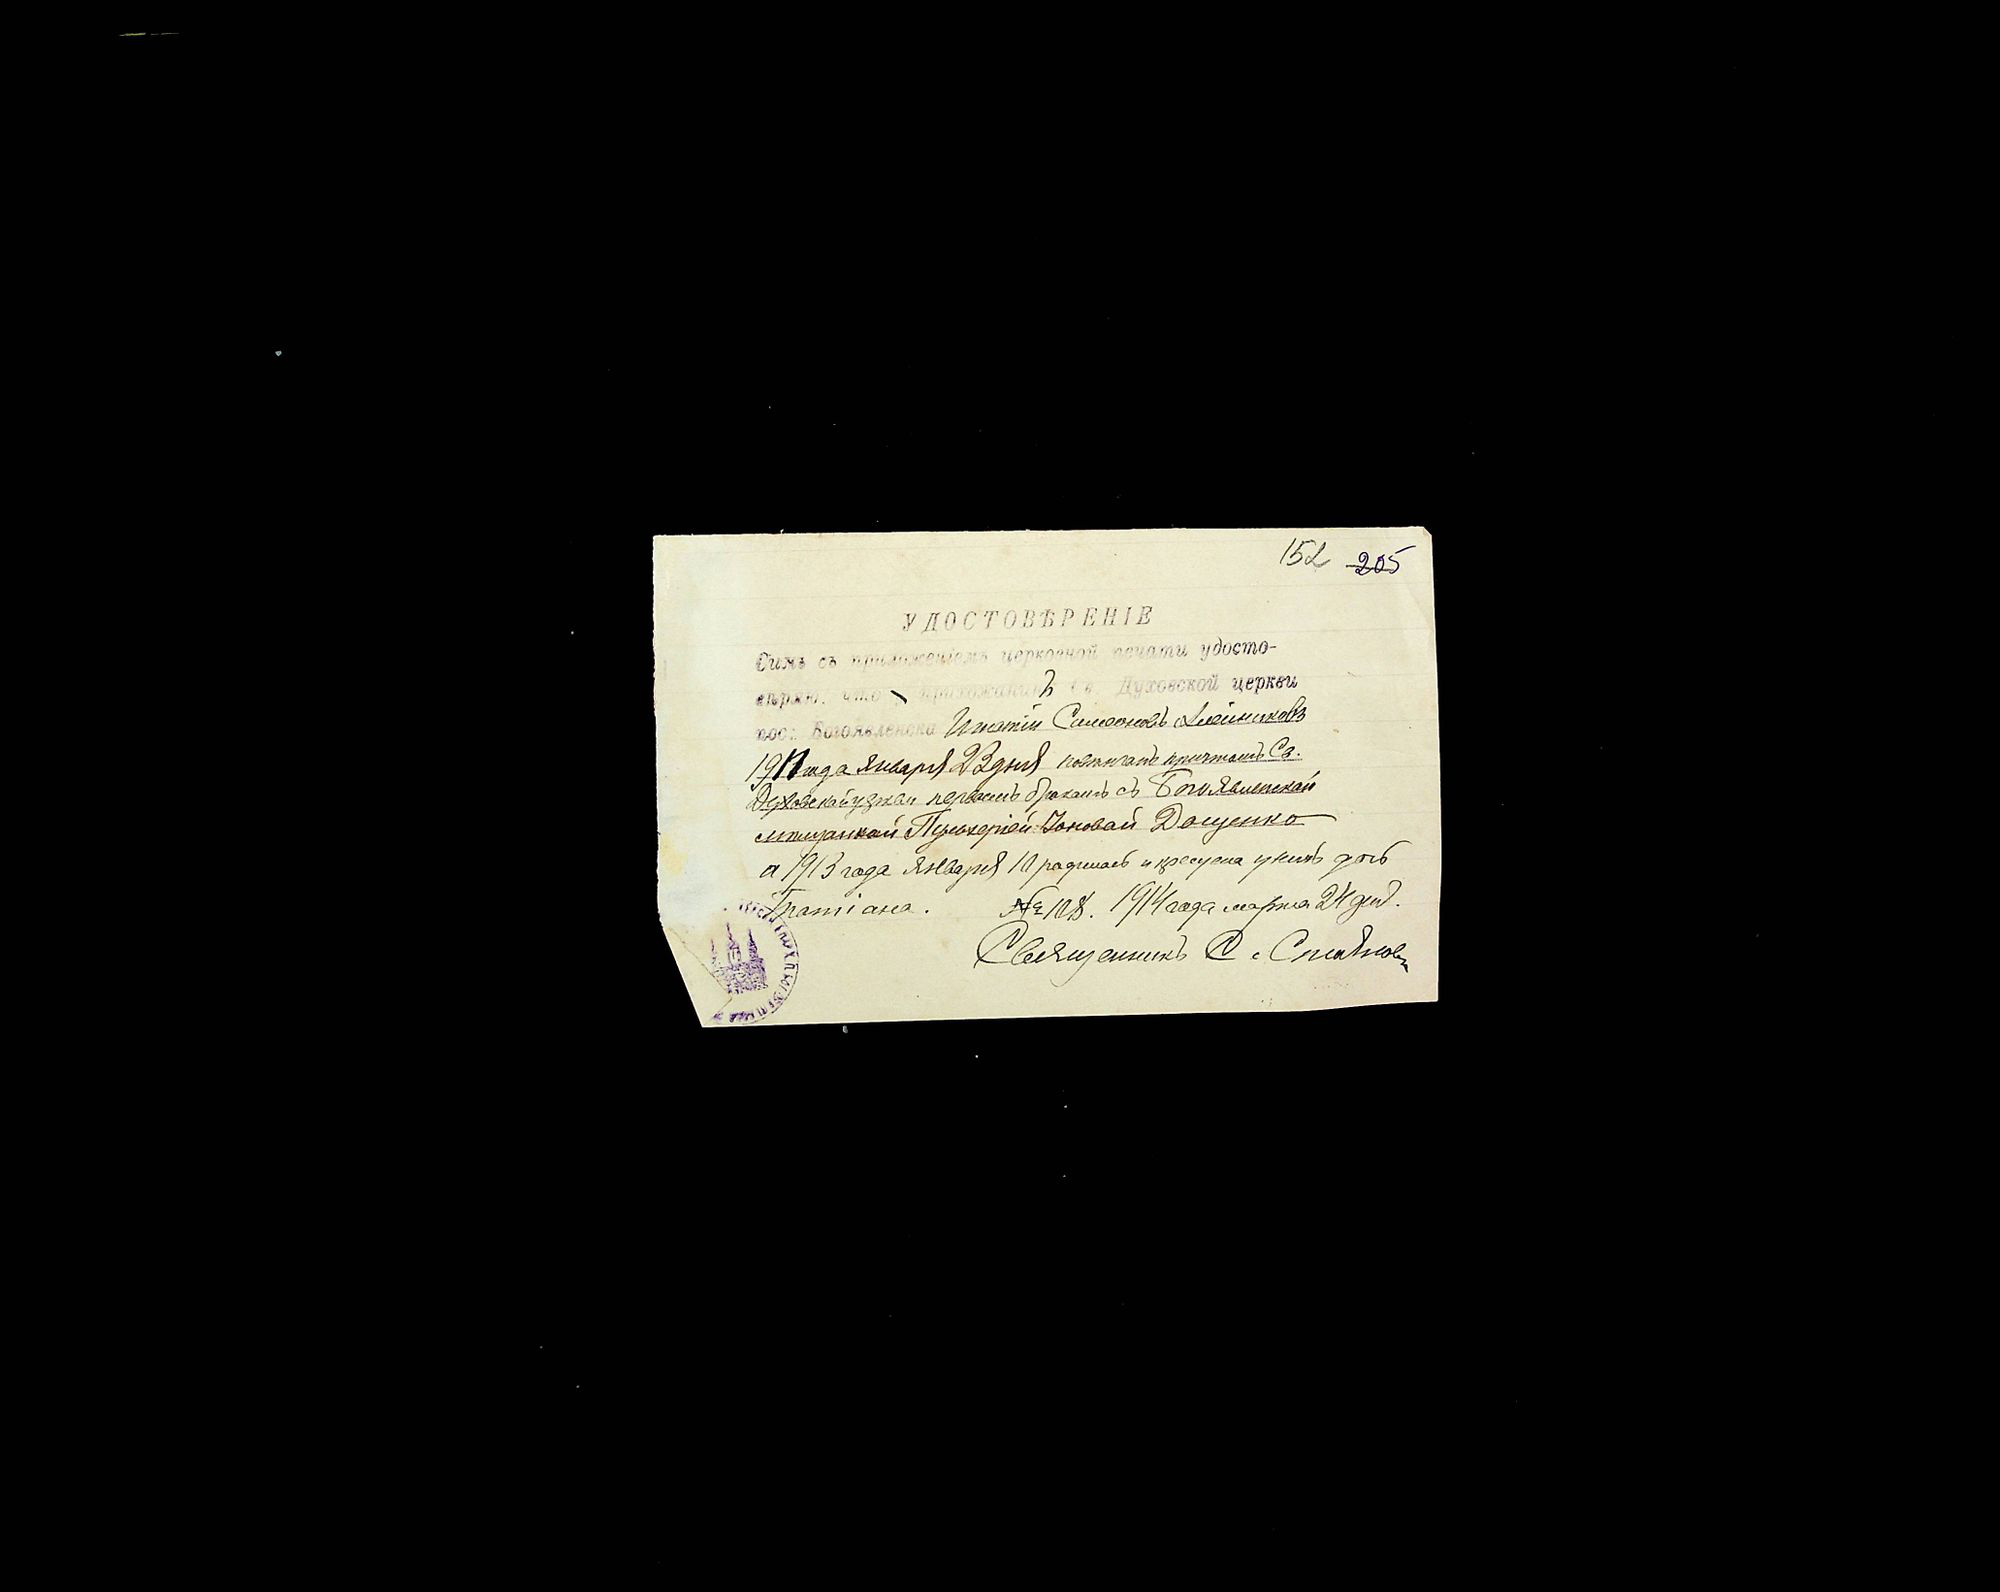 152 205
УДОСТОВѢРЕНІЕ
Симъ съ приложеніемъ церковной печати удосто-
вѣряю, что прихожанинъ Св. Духовской церкви
пос: Богоявленска Игнатій Симеоновъ Алейниковъ
1911 года Января 23 дня повѣнчанъ причтомъ Св.
Духовской церкви первымъ бракомъ съ Богоявленской
мѣщанкой Пульхеріей Іоновой Доценко
а 1913 года Января 10 родилась и крещена у нихъ дочь
Татіана. № 108. 1914 года марта 24 дня.
Священникъ С. Стояновъ